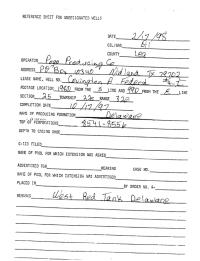 REFERENCE SHEET FOR UNDESIGNATED WELLS
DATE 2/17/98
OIL/GAS Oil
COUNTY Lea
OPERATOR Pogo Producing Co
ADDRESS PO Box 10340 Midland TX 79702
LEASE NAME, WELL NO. Covington A Federal
FOOTAGE LOCATION, 1980 FROM THE S LINE AND 990 FROM THE E LINE
SECTION 25 TOWNSHIP 22s RANGE 32e
COMPLETION DATE 10/17/97
NAME OF PRODUCING FORMATION Delaware
TOP OF PERFORATIONS 8541-8556
DEPTH TO CASING SHOE
C-123 FILED
NAME OF POOL FOR WHICH EXTENSION WAS ASKED
ADVERTISED FOR HEARING CASE NO.
NAME OF POOL FOR WHICH EXTENSION WAS ADVERTISED
PLACED IN BY ORDER NO. R-
REMARKS West Red Tank Delaware